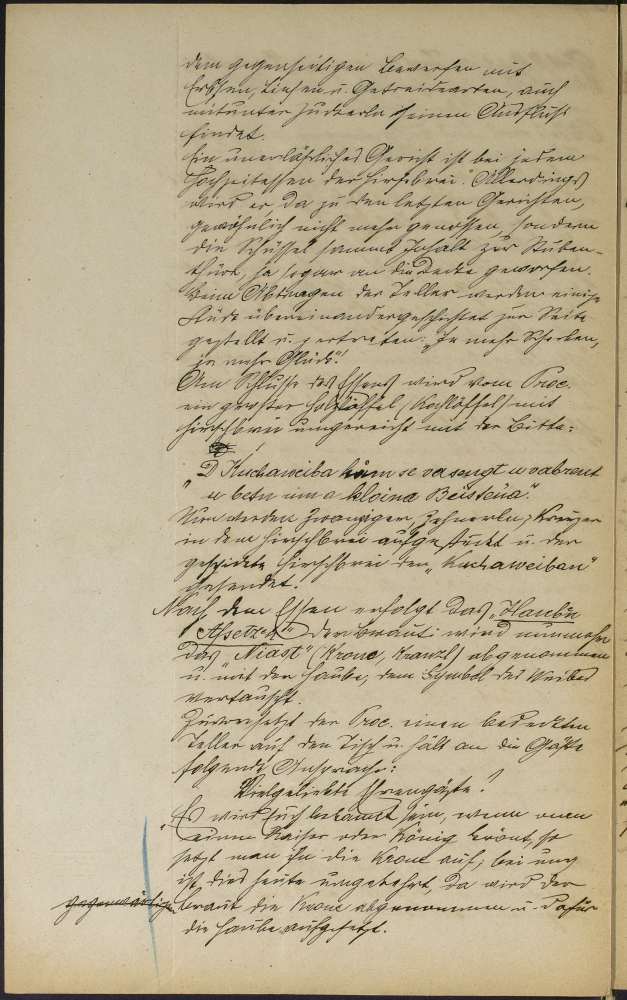 dem gegenseitigen Bewerfen mit
Erbsen, Linsen u. Getreidearten, auch
mitunter Zuckerln seinen Ausfluß
findet.
Ein unerläßliches Gericht ist bei jedem
Hochzeitessen der Hirsebrei. Allerdings
wird er, da zu den letzten Gerichten,
gewöhnlich nicht mehr genossen, sondern
die Schüssel sammt Inhalt zur Stuben-
thüre, ja sogar an die Decke geworfen.
Beim Abtragen der Teller werden einige
Stück übereinandergeschichtet zur Seite
gestellt u. zertreten. "Je mehr Scherben,
je mehr Glück"!
Am Schlusse des Essens wird vom Proc.
ein großer Holzlöffel (Kochlöffel) mit
Hirschbrei umgereicht mit der Bitte:
"D' Kuchaweiba håm se vasengt u vabrent
u betn um a kloina Beisteua."
Nun werden Zwanziger, Zehnerln, Kreuzer
in den Hirschbrei aufgesteckt u. der
gespickte Hirschbrei den "Kuchaweiban"
gesendet.
Nach dem Essen erfolgt das "Haubn
Afsetzn". Der Braut wird nunmehr
das "Niast" (Krone, Kranzl) abgenommen
u. mit der Haube, dem Symbol des Weibes
vertauscht.
Zuvor setzt der Proc. einen bedeckten
Teller auf den Tisch u. hält an die Gäste
folgende Ansprache:
Vielgeliebte Ehrengäste!
"Es wird Euch bekannt sein, wenn man
einen Kaiser oder König krönt, so
setzt man ihn die Krone auf; bei uns
ist dies heute umgekehrt, da wird der
gegenwärtigen Braut die Krone abgenommen u. dafür
die Haube aufgesetzt.